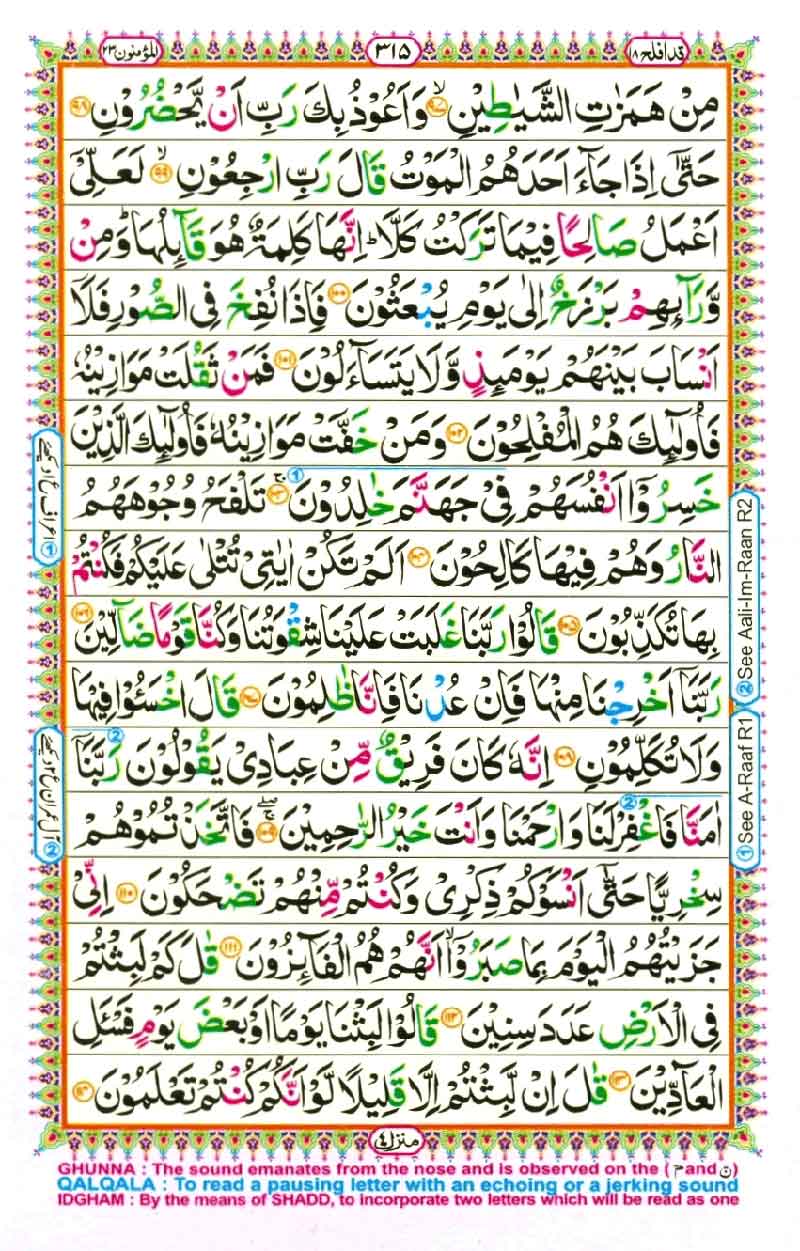 المؤمنون ٢٣ ٣١٥ قد افلح ١٨
مِنْ هَمَزٰتِ الشَّيٰطِيْنِ ۙ﴿٩٧﴾ وَاَعُوْذُ بِكَ رَبِّ اَنْ يَّحْضُرُوْنِ ﴿٩٨﴾
حَتّٰٓى اِذَا جَآءَ اَحَدَهُمُ الْمَوْتُ قَالَ رَبِّ ارْجِعُوْنِ ۙ﴿٩٩﴾ لَعَلِّىْٓ
اَعْمَلُ صَالِحًا فِيْمَا تَرَكْتُ كَلَّا ؕ اِنَّهَا كَلِمَةٌ هُوَ قَآئِلُهَا ؕ وَمِنْ
وَّرَآئِهِمْ بَرْزَخٌ اِلٰى يَوْمِ يُبْعَثُوْنَ ﴿١٠٠﴾ فَاِذَا نُفِخَ فِى الصُّوْرِ فَلَآ
اَنْسَابَ بَيْنَهُمْ يَوْمَئِذٍ وَّلَا يَتَسَآءَلُوْنَ ﴿١٠١﴾ فَمَنْ ثَقُلَتْ مَوَازِيْنُهٗ
فَاُولٰٓئِكَ هُمُ الْمُفْلِحُوْنَ ﴿١٠٢﴾ وَمَنْ خَفَّتْ مَوَازِيْنُهٗ فَاُولٰٓئِكَ الَّذِيْنَ
خَسِرُوْٓا اَنْفُسَهُمْ فِىْ جَهَنَّمَ خٰلِدُوْنَ ۚ﴿١٠٣﴾ تَلْفَحُ وُجُوْهَهُمُ
النَّارُ وَهُمْ فِيْهَا كَالِحُوْنَ ﴿١٠٤﴾ اَلَمْ تَكُنْ اٰيٰتِىْ تُتْلٰى عَلَيْكُمْ فَكُنْتُمْ
بِهَا تُكَذِّبُوْنَ ﴿١٠٥﴾ قَالُوْا رَبَّنَا غَلَبَتْ عَلَيْنَا شِقْوَتُنَا وَكُنَّا قَوْمًا ضَآلِّيْنَ ﴿١٠٦﴾
رَبَّنَآ اَخْرِجْنَا مِنْهَا فَاِنْ عُدْنَا فَاِنَّا ظٰلِمُوْنَ ﴿١٠٧﴾ قَالَ اخْسَئُوْا فِيْهَا
وَلَا تُكَلِّمُوْنِ ﴿١٠٨﴾ اِنَّهٗ كَانَ فَرِيْقٌ مِّنْ عِبَادِىْ يَقُوْلُوْنَ رَبَّنَآ
اٰمَنَّا فَاغْفِرْ لَنَا وَارْحَمْنَا وَاَنْتَ خَيْرُ الرّٰحِمِيْنَ ۚۖ﴿١٠٩﴾ فَاتَّخَذْتُمُوْهُمْ
سِخْرِيًّا حَتّٰٓى اَنْسَوْكُمْ ذِكْرِىْ وَكُنْتُمْ مِّنْهُمْ تَضْحَكُوْنَ ﴿١١٠﴾ اِنِّىْ
جَزَيْتُهُمُ الْيَوْمَ بِمَا صَبَرُوْٓا ۙ اَنَّهُمْ هُمُ الْفَآئِزُوْنَ ﴿١١١﴾ قٰلَ كَمْ لَبِثْتُمْ
فِى الْاَرْضِ عَدَدَ سِنِيْنَ ﴿١١٢﴾ قَالُوْا لَبِثْنَا يَوْمًا اَوْ بَعْضَ يَوْمٍ فَسْئَلِ
الْعَآدِّيْنَ ﴿١١٣﴾ قٰلَ اِنْ لَّبِثْتُمْ اِلَّا قَلِيْلًا لَّوْ اَنَّكُمْ كُنْتُمْ تَعْلَمُوْنَ ﴿١١٤﴾
② See Aali-Im-Raan R2
① See A-Raaf R1
منزل ٤
GHUNNA : The sound emanates from the nose and is observed on the ( م and ن )
QALQALA : To read a pausing letter with an echoing or a jerking sound
IDGHAM : By the means of SHADD, to incorporate two letters which will be read as one